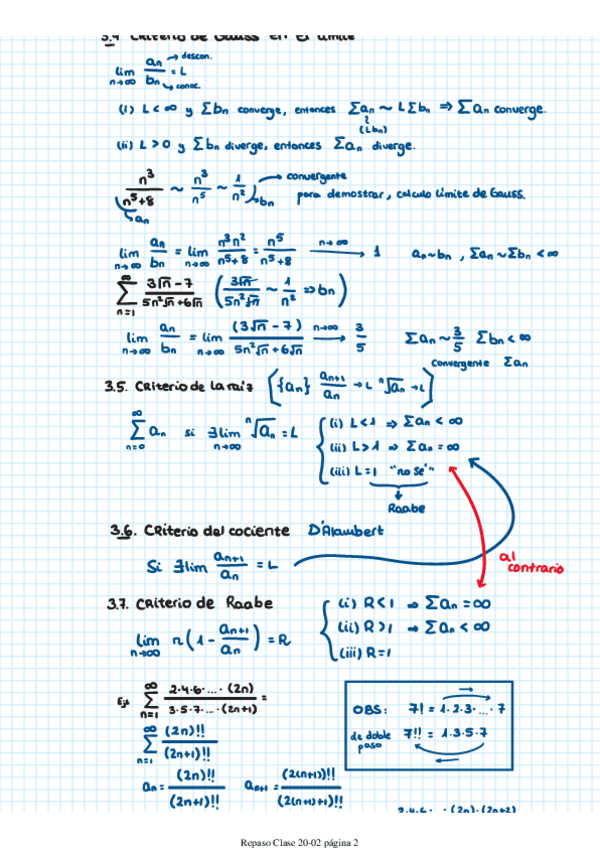 3.4 Criterio de Gauss en el límite
lim n→∞ an/bn = L → descon. → conoc.
(i) L < ∞ y Σbn converge, entonces Σan ~ LΣbn ⇒ Σan converge.
(Lbn)
(ii) L > 0 y Σbn diverge, entonces Σan diverge.
n³/(n⁵+8) ~ n³/n⁵ ~ 1/n² → convergente
an bn para demostrar, calculo límite de Gauss.
lim n→∞ an/bn = lim n→∞ n³n²/(n⁵+8) = n⁵/(n⁵+8) n→∞ → 1 an~bn , Σan ~ Σbn < ∞
∞ Σ n=1 (3√n - 7)/(5n²√n + 6√n) (3√n/(5n²√n) ~ 1/n² ⇒ bn)
lim n→∞ an/bn = lim n→∞ (3√n - 7)/(5n²√n + 6√n) n→∞ → 3/5 Σan ~ 3/5 Σbn < ∞
convergente Σan
3.5. Criterio de la raíz [{an} an+1/an → L ⁿ√an → L]
∞ Σ n=0 an si ∃lim n→∞ ⁿ√an = L
(i) L < 1 ⇒ Σan < ∞
(ii) L > 1 ⇒ Σan = ∞
(iii) L = 1 "no sé"
Raabe
3.6. Criterio del cociente D'Alambert
Si ∃lim an+1/an = L
al contrario
3.7. Criterio de Raabe
lim n→∞ n(1 - an+1/an) = R
(i) R < 1 ⇒ Σan = ∞
(ii) R > 1 ⇒ Σan < ∞
(iii) R = 1
Ej: ∞ Σ n=1 2·4·6·...·(2n)/3·5·7·...·(2n+1) =
∞ Σ n=1 (2n)!!/(2n+1)!!
an = (2n)!!/(2n+1)!! an+1 = (2(n+1))!!/(2(n+1)+1)!!
OBS: 7! = 1·2·3·...·7
de doble paso 7!! = 1·3·5·7
2·4·6 ... (2n)·(2n+2)
Repaso Clase 20-02 página 2